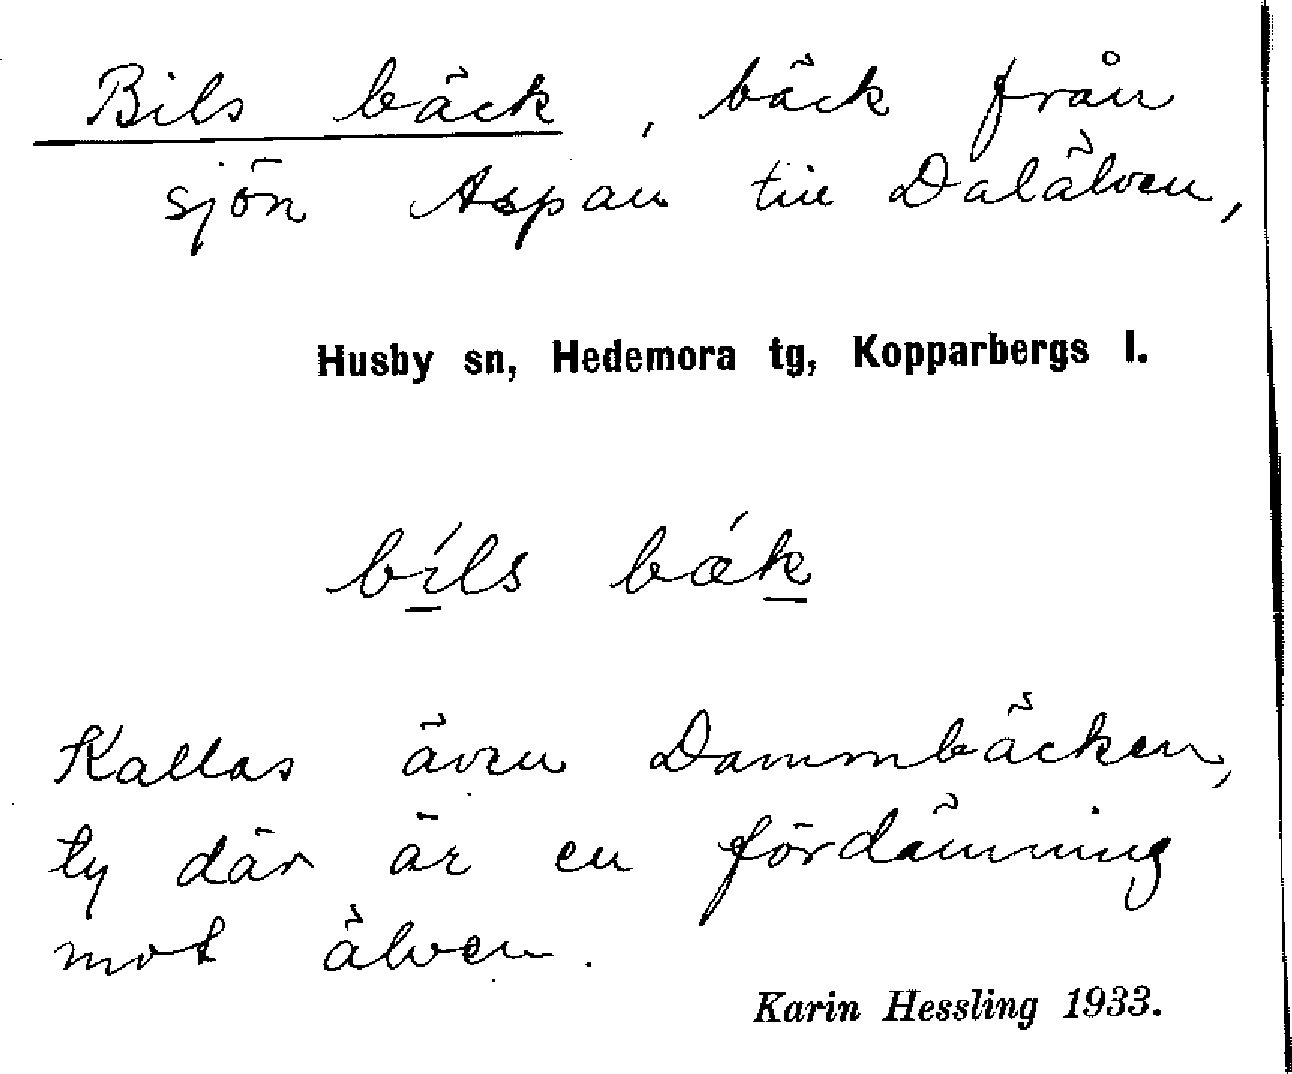 Bils bäck, bäck från
sjön Aspan till Dalälven,
Husby sn, Hedemora tg, Kopparbergs l.
bí̲ls bæ´k̲
Kallas även Dammbäcken,
ty där är en fördämning
mot älven.
Karin Hessling 1933.